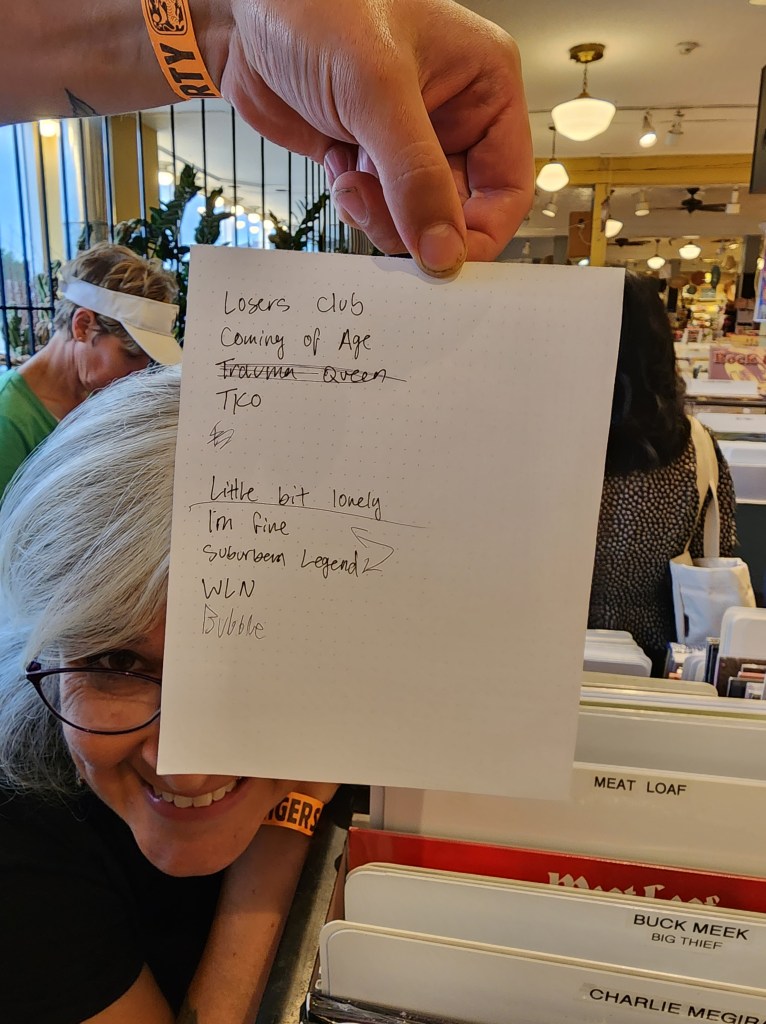 RTY
Losers Club
Coming of Age
Trauma Queen
TKO
Little bit lonely
I'm fine
Suburban Legend
WLN
Bubble
NGERS
MEAT LOAF
Meat Loaf
BUCK MEEK
BIG THIEF
CHARLIE MEGIRA
Rock